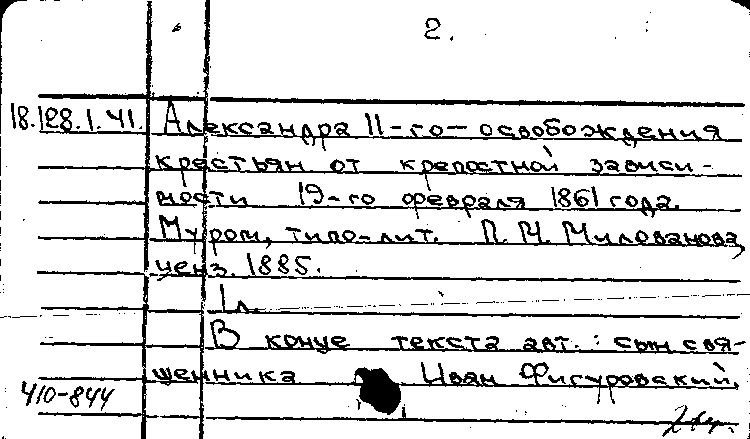 2.
18.128.1.41. Александра II-го - освобождения
крестьян от крепостной зависи-
мости 19-го февраля 1861 года.
Муром, типо-лит. П. М. Милованова,
ценз. 1885.
1 л.
В конце текста авт.: сын свя-
щенника Иван Фигуровский.
410-844